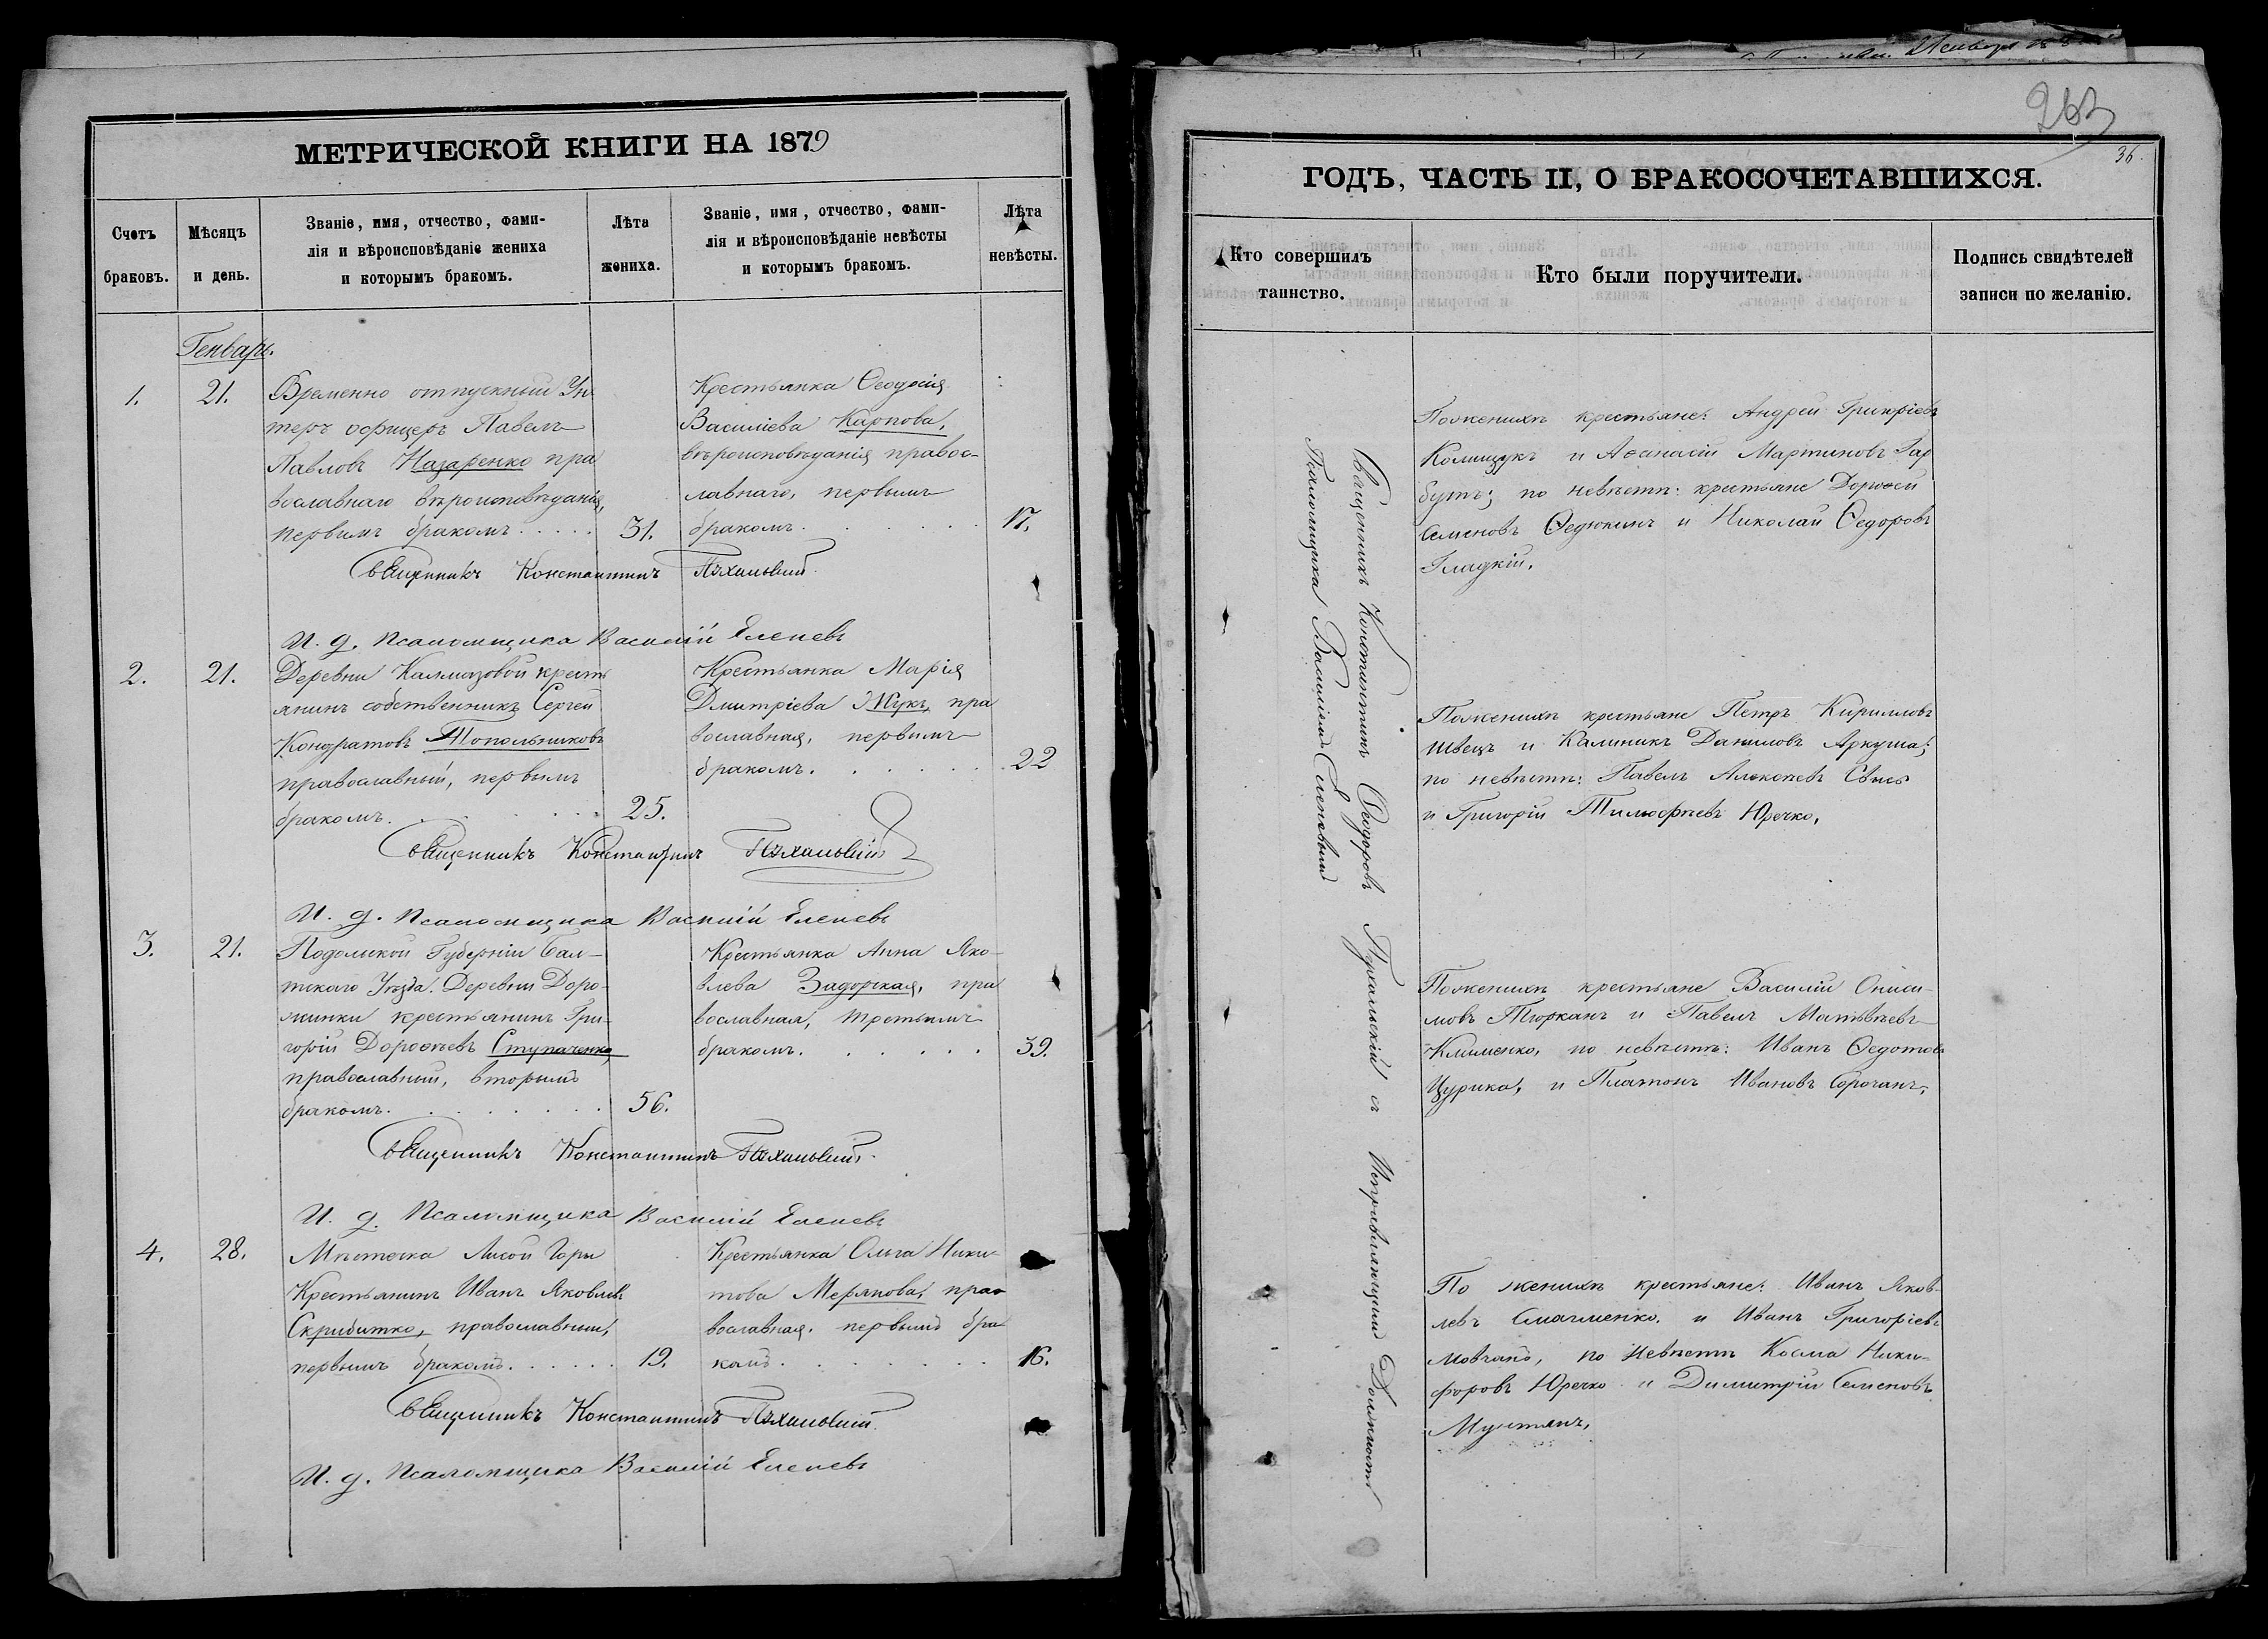 МЕТРИЧЕСКОЙ КНИГИ НА 1879
Счетъ браковъ.
Мѣсяцъ и день.
Званіе, имя, отчество, фами-
лія и вѣроисповѣданіе жениха
и которымъ бракомъ.
Лѣта жениха.
Званіе, имя, отчество, фами-
лія и вѣроисповѣданіе невѣсты
и которымъ бракомъ.
Лѣта невѣсты.
Генварь.
1.
21.
Временно отпускный Ун
теръ офицеръ Павелъ
Павловъ Назаренко пра
вославнаго вѣроисповѣданія,
первымъ бракомъ
31.
Крестьянка Ѳеодосія
Василіева Карпова,
вѣроисповѣданія правос-
лавнаго, первымъ
бракомъ.
17.
Священникъ Константинъ
И. д. Псаломщика Василій Еленевъ
2.
21.
Деревни Калмазовой кресть
янинъ собственникъ Сергей
Кондратовъ Топольниковъ
православный, первымъ
бракомъ.
25.
Крестьянка Марія
Дмитріева Жукъ, пра
вославная, первымъ
бракомъ.
22
Священникъ Константинъ
И. д. Псаломщика Василій Еленевъ
3.
21.
Подольской Губерніи Бал-
тскаго Уѣзда. Деревни Доро-
жинки крестьянинъ Гри-
горій Дороѳеевъ Ступаченко,
православный, вторымъ
бракомъ.
56.
Крестьянка Анна Яко-
влева Задорская, пра
вославная, третьимъ
бракомъ.
39.
Священникъ Константинъ
И. д. Псаломщика Василій Еленевъ
4.
28.
Мѣстечка Лысой Горы
Крестьянинъ Иванъ Яковлевъ
Скрибитко, православный,
первымъ бракомъ.
19.
Крестьянка Ольга Ники-
това Мерянова, пра
вославная, первымъ бра
комъ.
16.
Священникъ Константинъ
И. д. Псаломщика Василій Еленевъ
263
36.
ГОДЪ, ЧАСТЬ II, О БРАКОСОЧЕТАВШИХСЯ.
Кто совершилъ таинство.
Кто были поручители.
Подпись свидѣтелей записи по желанію.
Священникъ Константинъ Ѳеодоровъ съ Исправляющимъ Должность
Псаломщика Василіемъ Еленевымъ
По женихѣ крестьяне: Андрей Григоріевъ
Колищукъ и Аѳанасій Мартиновъ Гар
бузъ; по невѣстѣ: крестьяне Дороѳей
Семеновъ Ѳедюкинъ и Николай Ѳедоровъ
Гладкій.
По женихѣ крестьяне Петръ Кирилловъ
Швецъ и Калиникъ Даниловъ Аркуша;
по невѣстѣ: Павелъ
и Григорій Тимофѣевъ Юречко,
По женихѣ крестьяне Василій Ониси-
мовъ Тюрканъ и Павелъ Матвѣевъ
Клименко, по невѣстѣ: Иванъ Ѳедотовъ
Цурика, и Платонъ Ивановъ Сорочанъ,
По женихѣ крестьяне: Иванъ Яков-
левъ и Иванъ Григоріевъ
Мовчанъ, по невѣстѣ Косма Ники-
форовъ Юречко и Димитрій Семеновъ
Мустянъ,